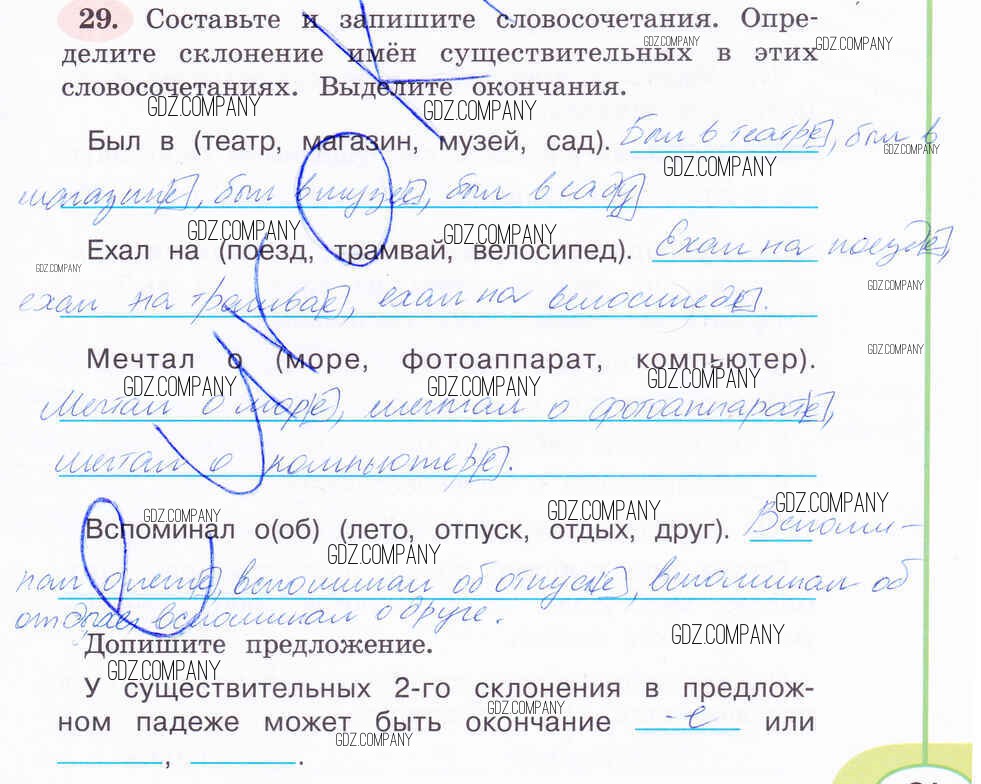 29. Составьте и запишите словосочетания. Опре-
делите склонение имён существительных в этих
словосочетаниях. Выделите окончания.
GDZ.COMPANY GDZ.COMPANY GDZ.COMPANY GDZ.COMPANY
Был в (театр, магазин, музей, сад). Был в театре, был в
GDZ.COMPANY GDZ.COMPANY
магазине, был в музее, был в саду
GDZ.COMPANY GDZ.COMPANY
Ехал на (поезд, трамвай, велосипед). Ехал на поезде,
GDZ.COMPANY GDZ.COMPANY
ехал на трамвае, ехал на велосипеде.
Мечтал о (море, фотоаппарат, компьютер).
GDZ.COMPANY GDZ.COMPANY GDZ.COMPANY GDZ.COMPANY
Мечтал о море, мечтал о фотоаппарате,
мечтал о компьютере.
GDZ.COMPANY GDZ.COMPANY GDZ.COMPANY
Вспоминал о(об) (лето, отпуск, отдых, друг). Вспоми-
GDZ.COMPANY
нал о лете, вспоминал об отпуске, вспоминал об
отдыхе, вспоминал о друге.
GDZ.COMPANY
Допишите предложение.
GDZ.COMPANY
У существительных 2-го склонения в предлож-
GDZ.COMPANY
ном падеже может быть окончание -е или
GDZ.COMPANY
, .